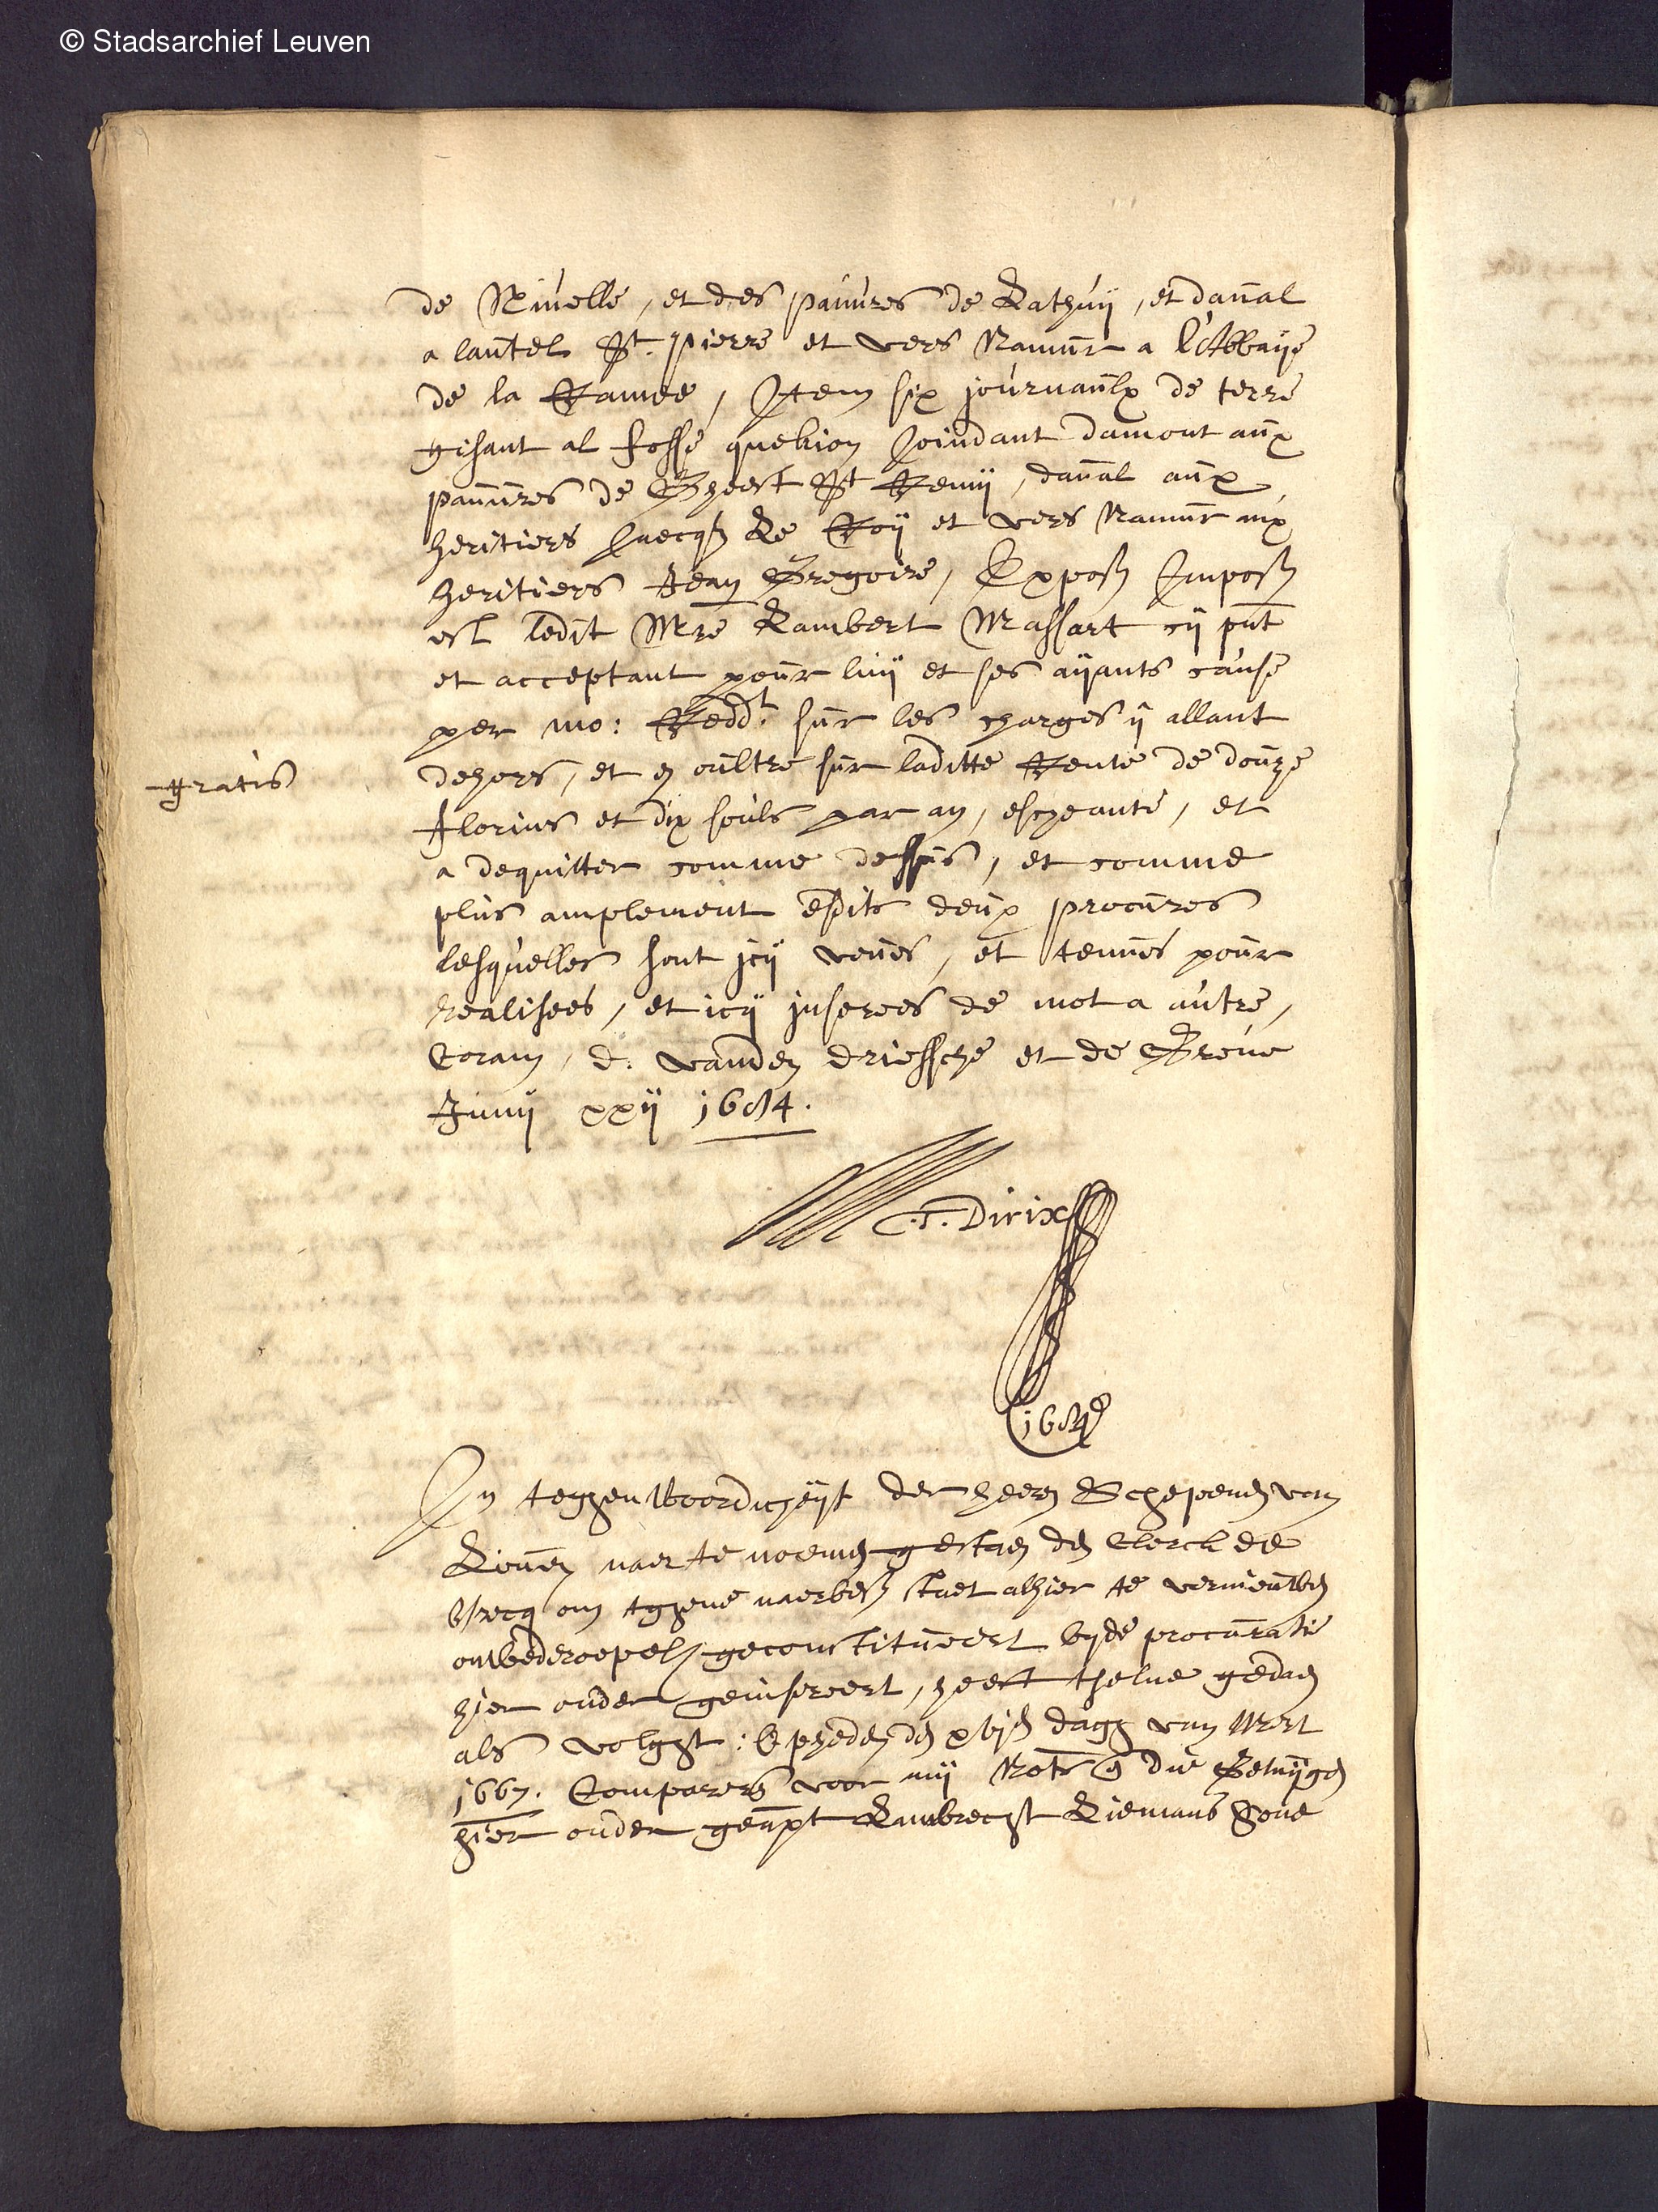 © Stadsarchief Leuven
de Nivelle, et des pauvres de Lathuy, et daval
a lautel St. Pierre et vers Namur a l'Abbaye
de la Ramee, Item six journaulx de terre
gisant al fosse quelion Joindant damont aux
pauvres de Gheest St Remy, daval aux
heritiers Jaecqs Le Roy et vers Namur aux
heritiers Jean Gregoire, Exposs Imposs
est ledit Mre Lambert Massart cy pnt
et acceptant pour luy et ses ayants cause
per mo: Reddt. sur les charges y allant
gratis
dehors, et en oultre sur laditte Rente de douze
florins et dix souls par an, escheante, et
a dequitter comme dessus, et comme
plus amplement esdits deux procures
lesquelles sont icy veues, et tenues pour
realisees, et icy inserees de mot a autre,
Coram, d. vanden driessche et de Greve
Junij xxij 1684.
Dirix
1684
In teghenwoordicheyt der heeren Schepenen van
Loven naer te noemen gestaen den Clerck de
om tgene naerbes: staet alhier te vernieuwen
onwederroepel: geconstitueert byde procuratie
hier onder geinsereert, heeft tselve gedaen
als volght: Opheden den xvjen dagh van Mert
1667. Compareren voor my Notrs die Getuygen
hier onder genaempt Lambrecht Liemans Sone